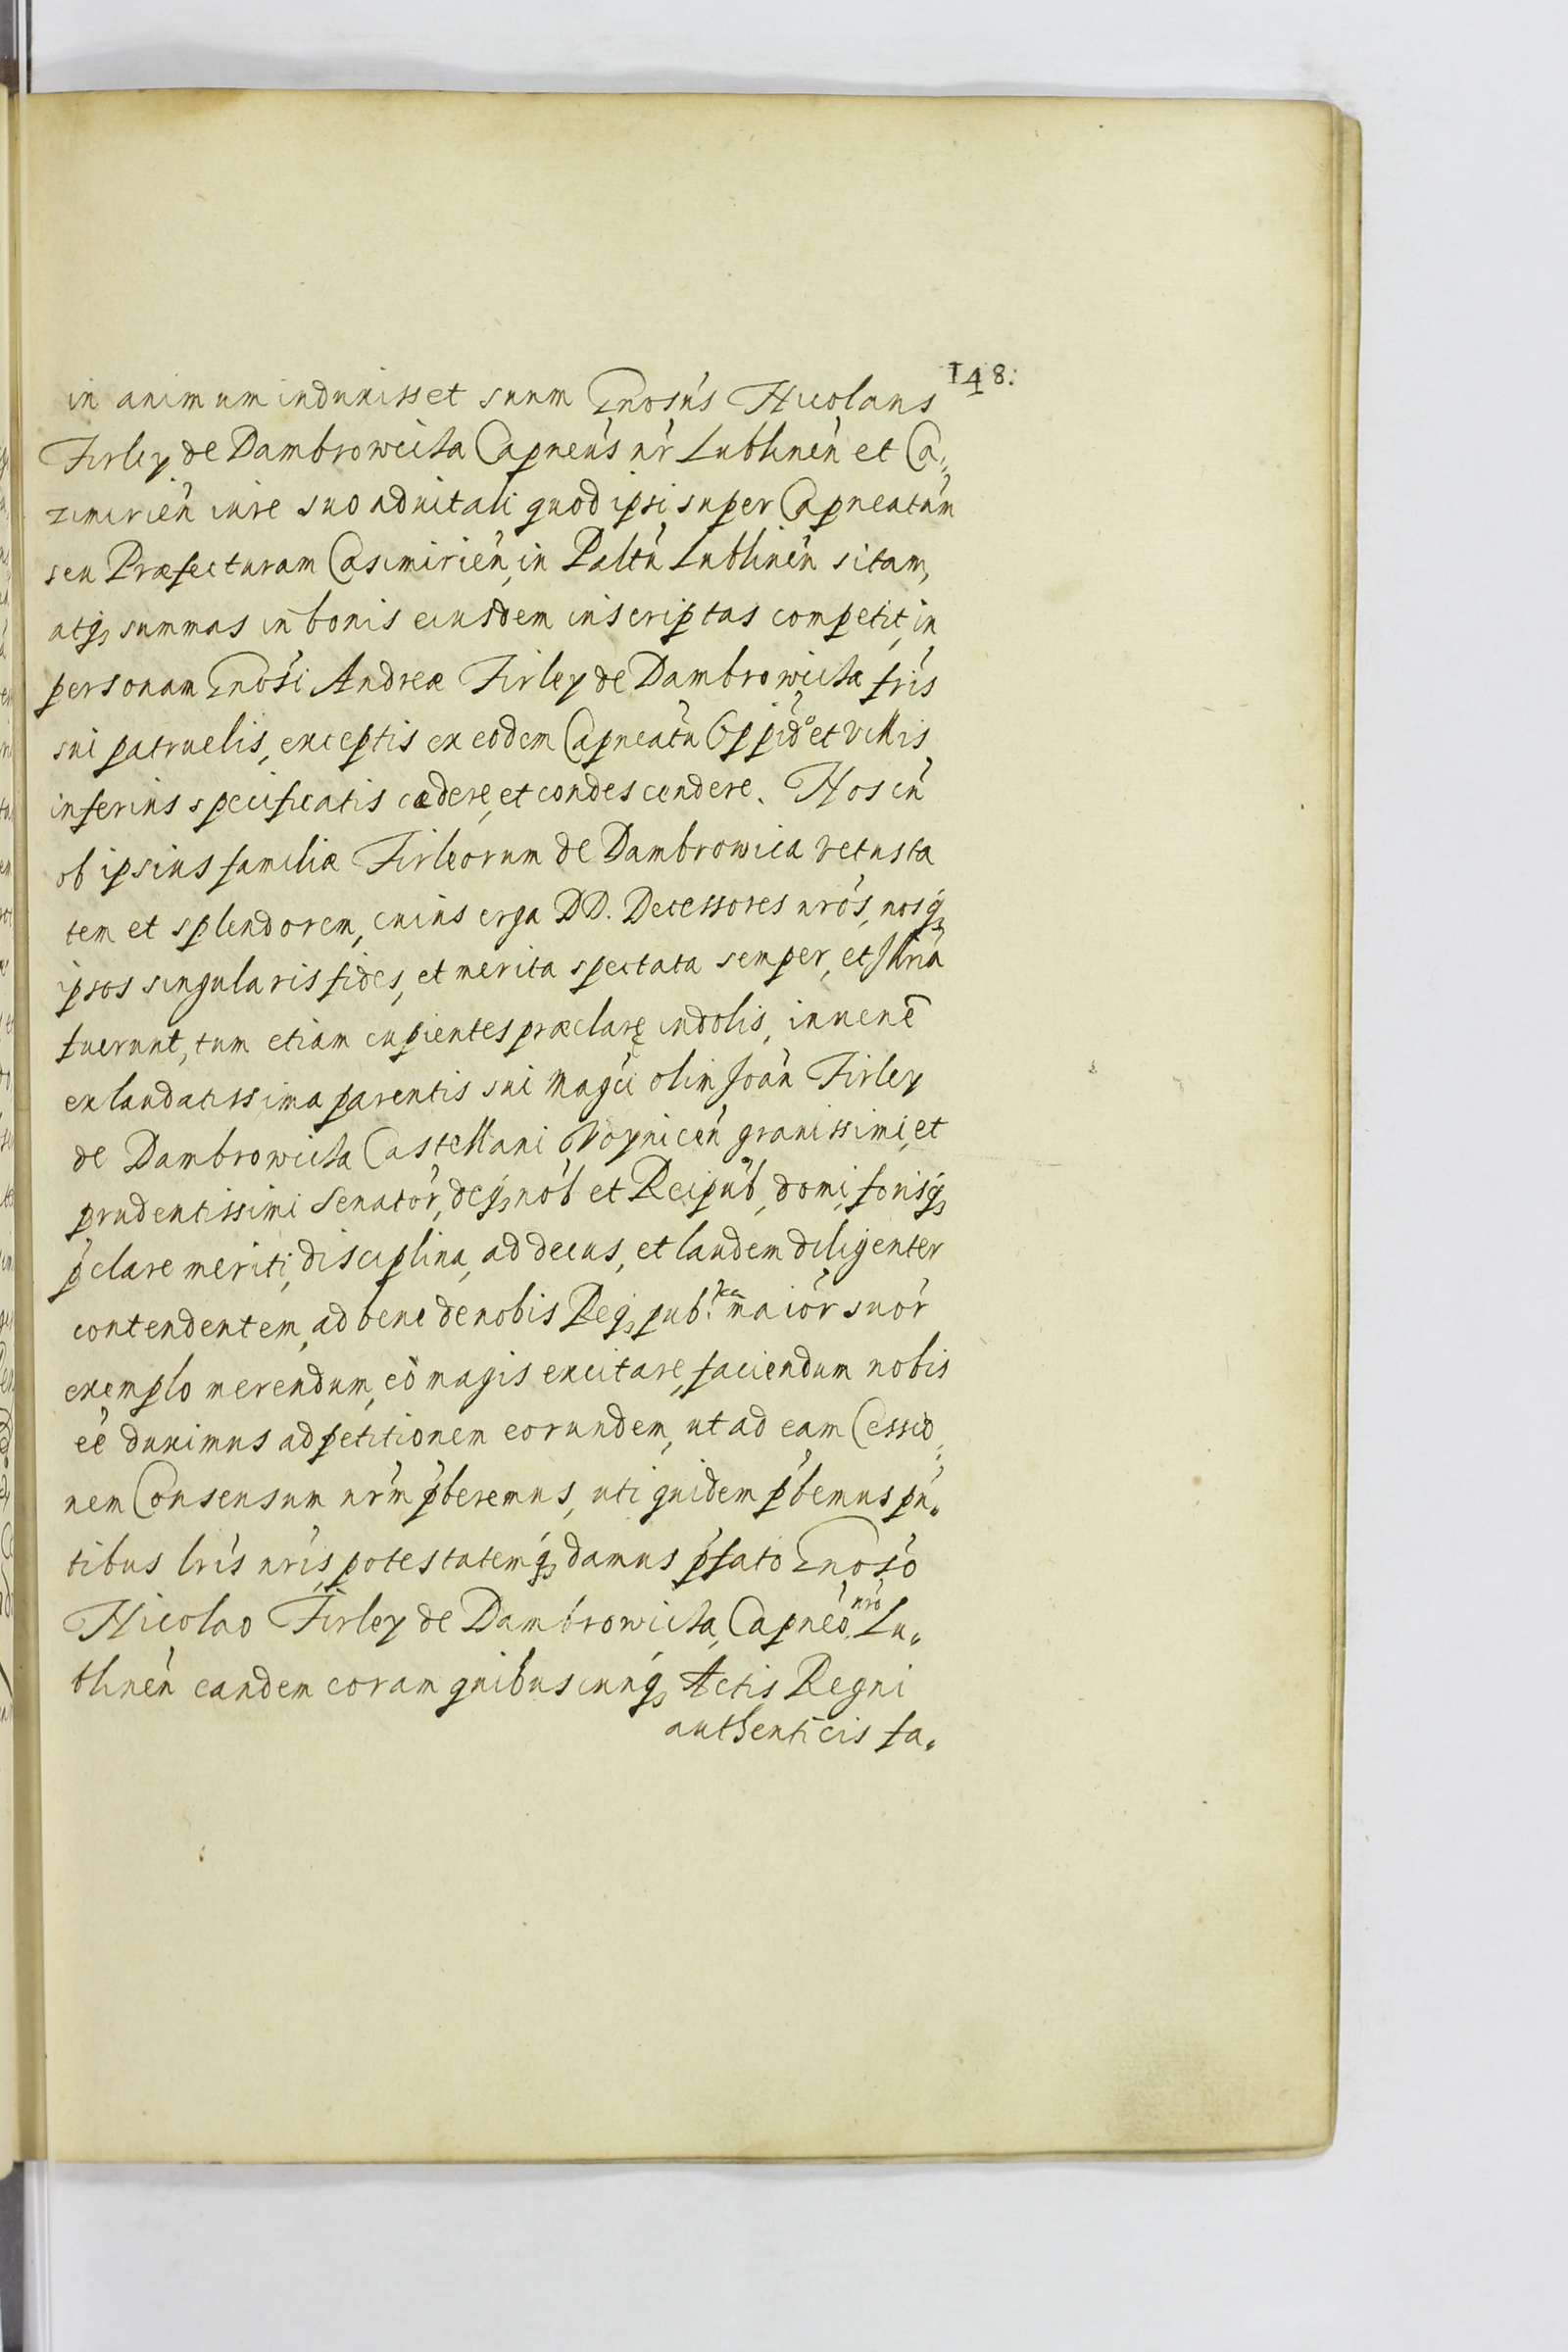 148.
in animum induxisset suum Gnosus Nicolaus
Firley de Dambrowicza Capneus nr Lublinen et Ca„
zimirien iure suo aduitali quod ipsi super Capneatum
seu Præfecturam Casimirien, in Paltu Lublinen sitam,
atq summas in bonis eiusdem inscriptas competit, in
personam Gnosi Andreæ Firley de Dambrowicza fris
sui patruelis, exceptis ex eodem Capneatu Oppido et villis
inferius specificatis cædere, et condescendere. Nos in
ob ipsius familiæ Firleorum de Dambrowica vetusta
tem et splendorem, cuius erga DD. Decessores nros, nosq
ipsos singularis fides, et merita spectata semper, et Illria
fuerunt, tum etiam cupientes præclarę indolis, iuuenē
ex laudatissima parentis sui Magci olim Joan Firley
de Dambrowicza Castellani Woynicen grauissimi, et
prudentissimi Senator, deq nob et Reipub, domi, forisq
pclare meriti, disciplina, ad decus, et laudem diligenter
contendentem, ad bene de nobis Req pub.ca maior suor
exemplo merendum, eo magis excitare, faciendum nobis
ee duximus ad petitionem eorundem, ut ad eam Cessio„
nem Consensum nrm pberemus, uti quidem pbemus pn„
tibus lris nris, potestatemq damus pfato Gnoso
Nicolao Firley de Dambrowicza, Capneo nro Lu„
blinen eandem coram quibuscunq Actis Regni
authenticis fa„